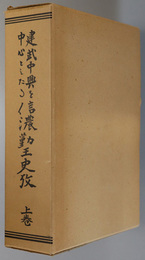 建武中興を
中心としたる信濃勤王史攷
上巻